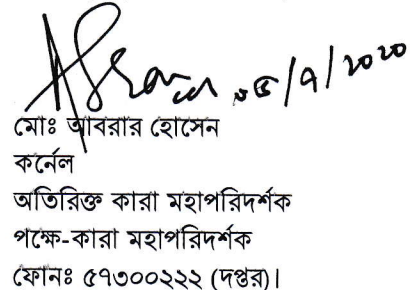 ০৫/৭/২০২০
মোঃ আবরার হোসেন
কর্নেল
অতিরিক্ত কারা মহাপরিদর্শক
পক্ষে-কারা মহাপরিদর্শক
ফোনঃ ৫৭৩০০২২২ (দপ্তর)।